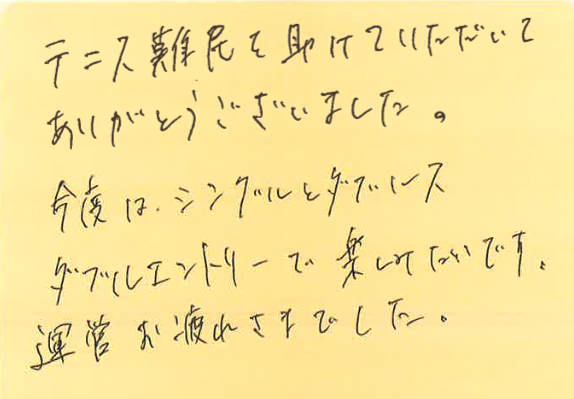 テニス難民を助けていただいて
ありがとうございました。
今度は、シングルとダブルス
ダブルエントリーで楽しみたいです。
運営お疲れさまでした。